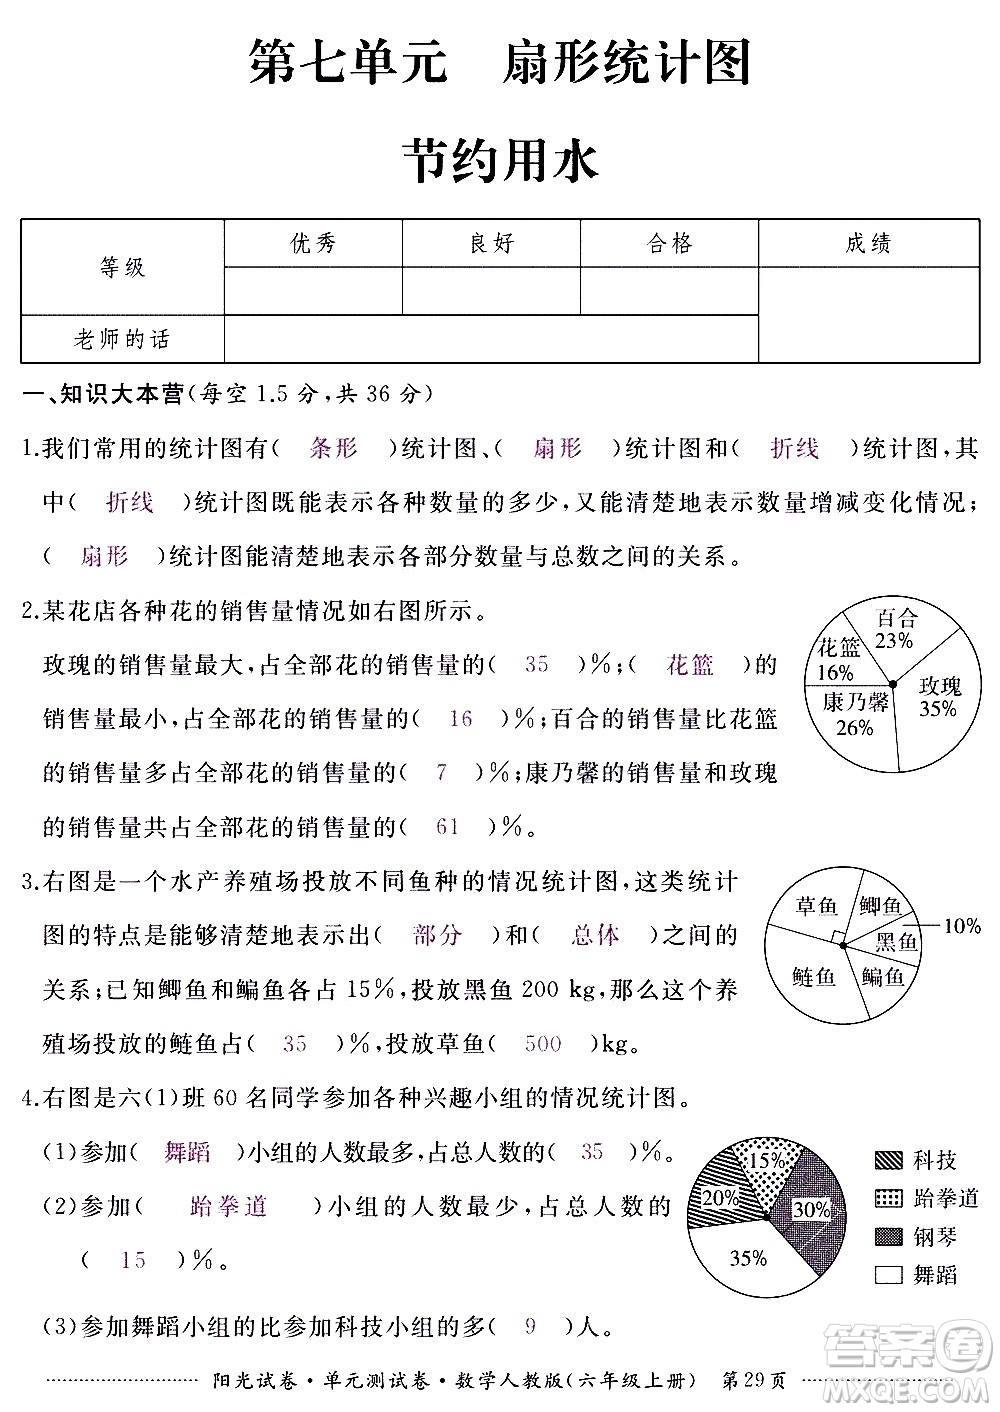 第七单元 扇形统计图
节约用水
等级 优秀 良好 合格 成绩
老师的话
一、知识大本营(每空1.5分,共36分)
1.我们常用的统计图有( 条形 )统计图、( 扇形 )统计图和( 折线 )统计图,其
中( 折线 )统计图既能表示各种数量的多少,又能清楚地表示数量增减变化情况;
( 扇形 )统计图能清楚地表示各部分数量与总数之间的关系。
2.某花店各种花的销售量情况如右图所示。
玫瑰的销售量最大,占全部花的销售量的( 35 )%;( 花篮 )的
销售量最小,占全部花的销售量的( 16 )%;百合的销售量比花篮
的销售量多占全部花的销售量的( 7 )%;康乃馨的销售量和玫瑰
的销售量共占全部花的销售量的( 61 )%。
百合
23%
花篮
16%
玫瑰
35%
康乃馨
26%
3.右图是一个水产养殖场投放不同鱼种的情况统计图,这类统计
图的特点是能够清楚地表示出( 部分 )和( 总体 )之间的
关系;已知鲫鱼和鳊鱼各占15%,投放黑鱼200 kg,那么这个养
殖场投放的鲢鱼占( 35 )%,投放草鱼( 500 )kg。
草鱼
鲫鱼
10%
黑鱼
鲢鱼
鳊鱼
4.右图是六(1)班60名同学参加各种兴趣小组的情况统计图。
(1)参加( 舞蹈 )小组的人数最多,占总人数的( 35 )%。
(2)参加( 跆拳道 )小组的人数最少,占总人数的
( 15 )%。
(3)参加舞蹈小组的比参加科技小组的多( 9 )人。
15%
20%
30%
35%
科技
跆拳道
钢琴
舞蹈
阳光试卷·单元测试卷·数学人教版(六年级上册) 第29页
答案圈
MXQE.COM